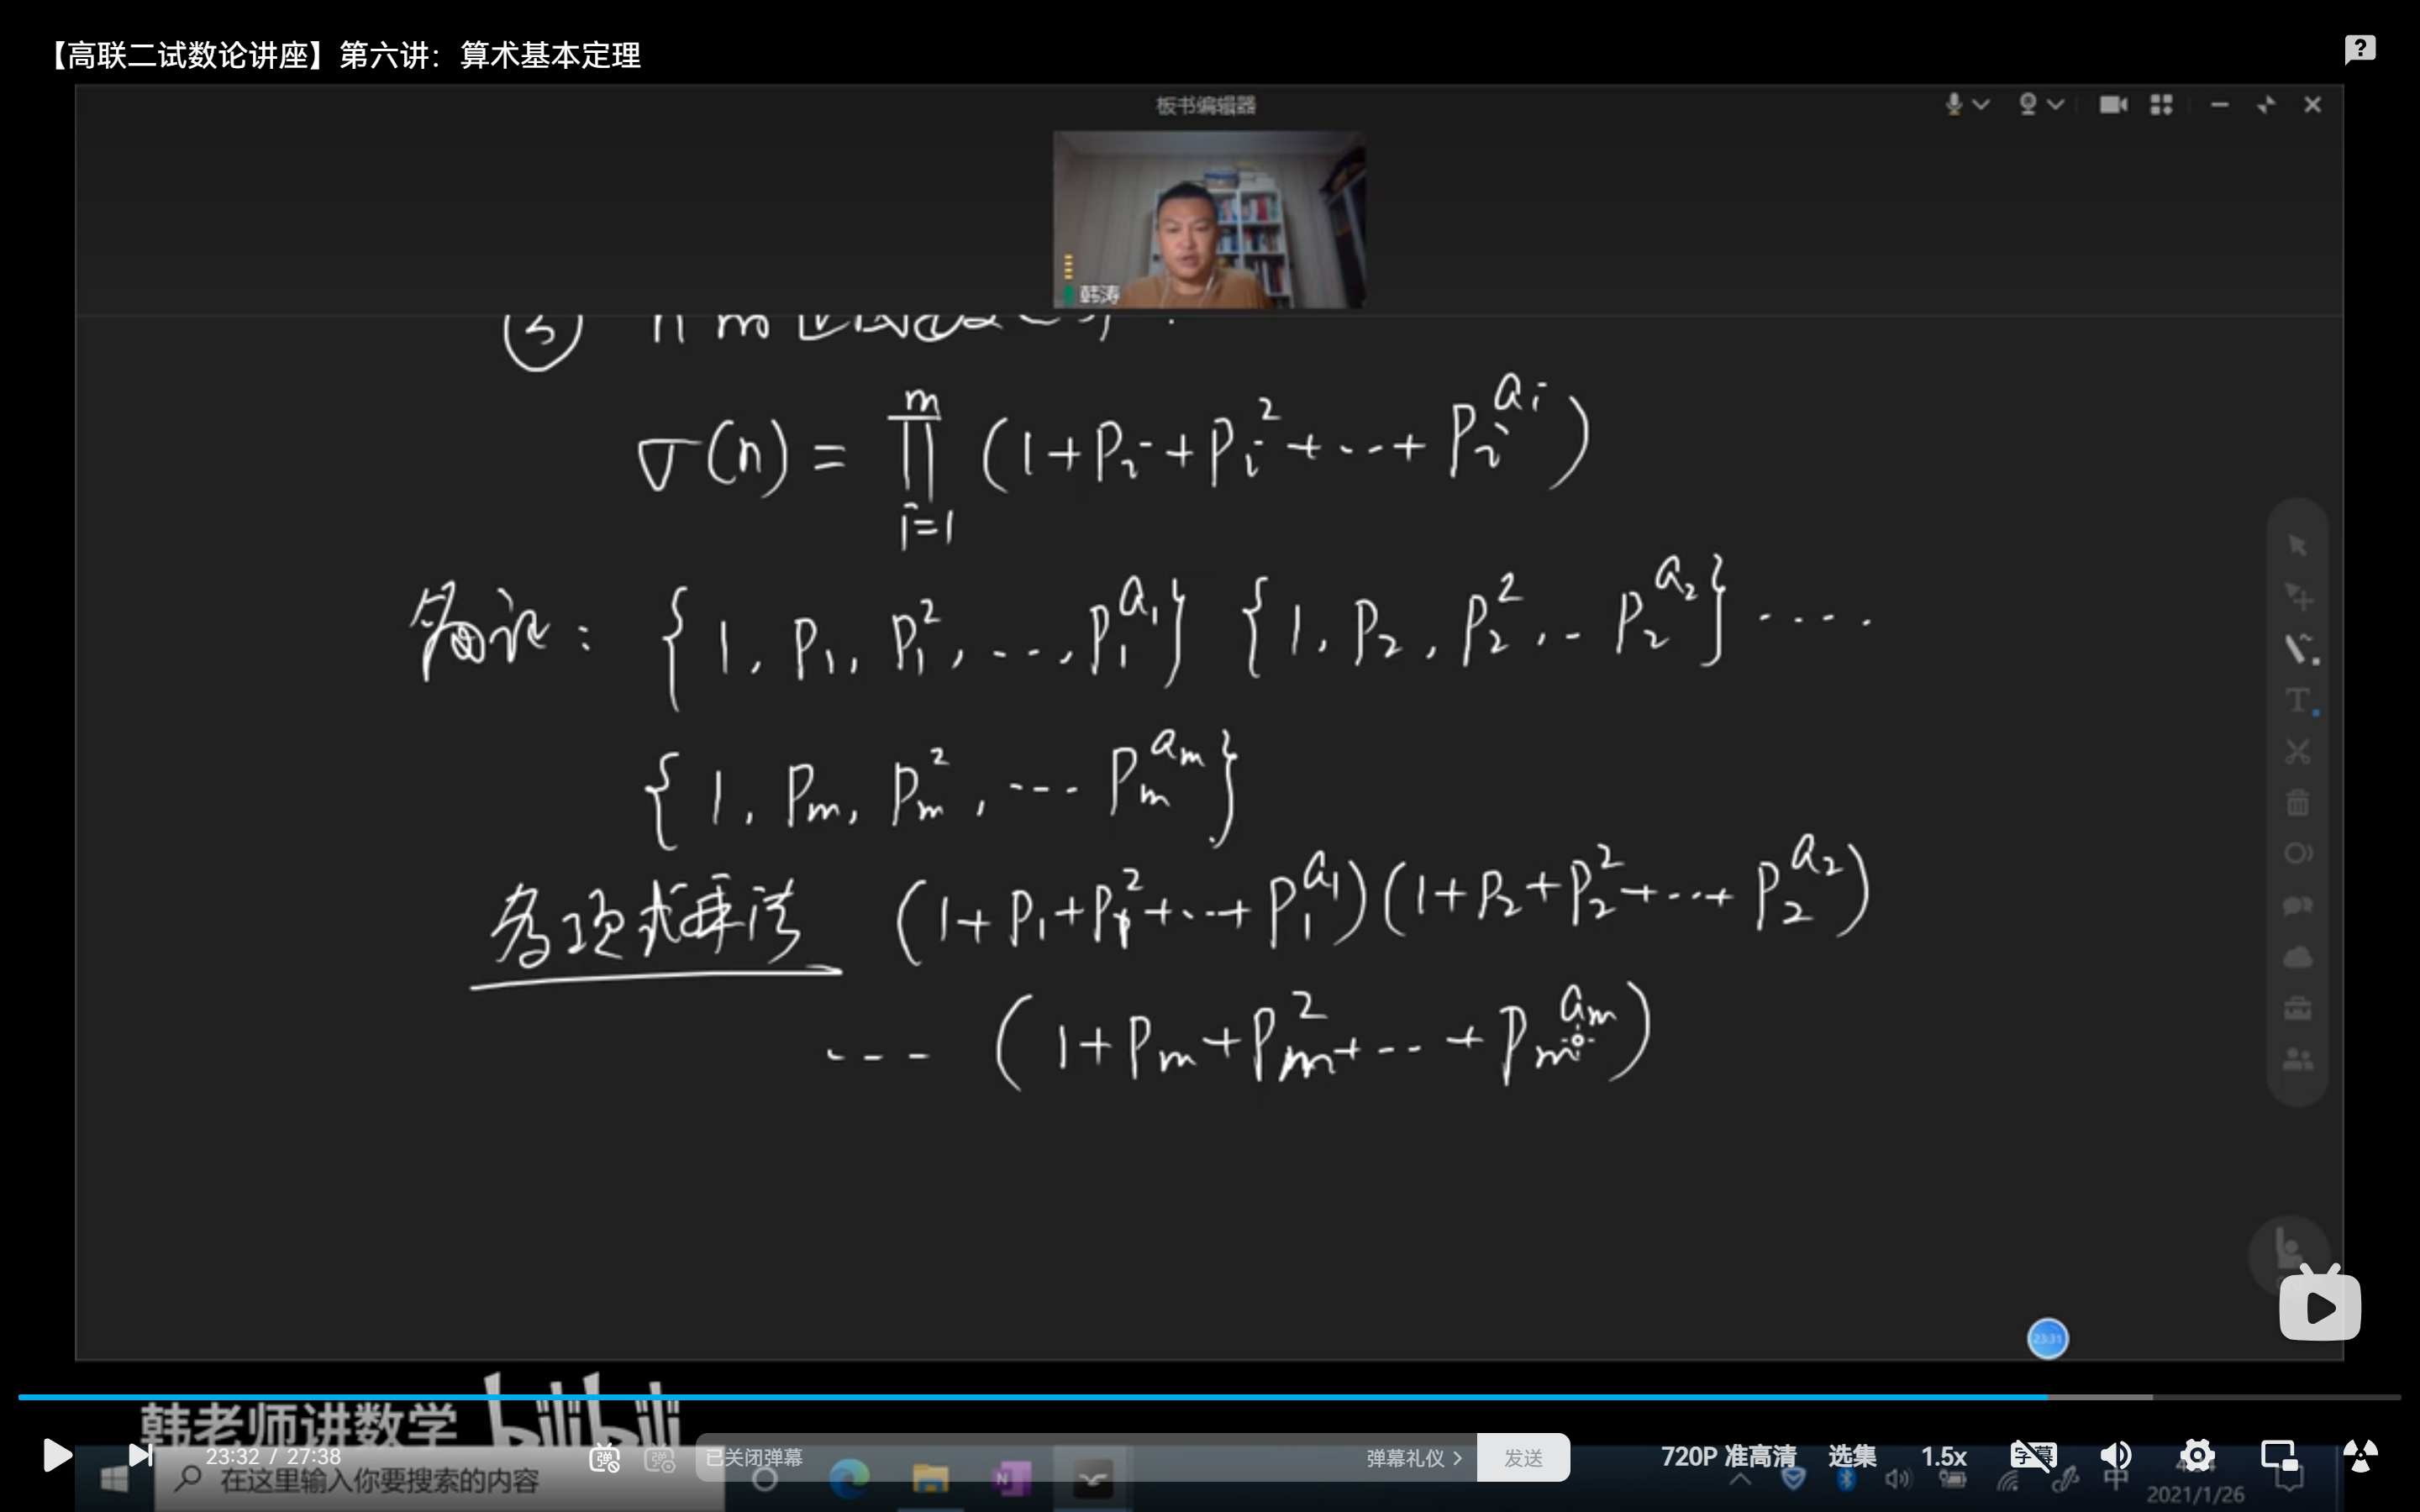 【高联二试数论讲座】第六讲：算术基本定理
板书编辑器
韩涛
③ n
σ(n) = ∏_{i=1}^{m} (1+p_i+p_i^2+...+p_i^{a_i})
: {1, p_1, p_1^2, ..., p_1^{a_1}} {1, p_2, p_2^2, .. p_2^{a_2}} ....
{1, p_m, p_m^2, ... p_m^{a_m}}
多项式乘法 (1+p_1+p_1^2+...+p_1^{a_1})(1+p_2+p_2^2+...+p_2^{a_2})
... (1+p_m+p_m^2+...+p_m^{a_m})
23:31
韩老师讲数学 bilibili
23:32 / 27:38
已关闭弹幕
弹幕礼仪 >
发送
720P 准高清
选集
1.5x
字幕
在这里输入你要搜索的内容
中
2021/1/26